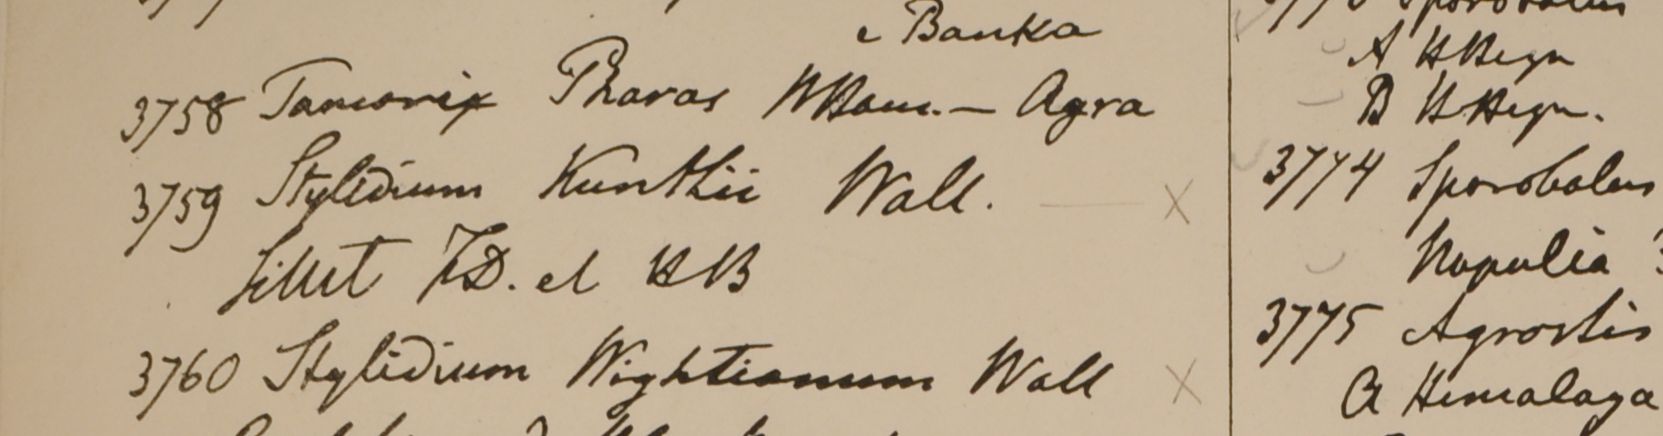 c Banka
3758 Tamarix Pharas WHam. — Agra
3759 Stylidium Kunthii Wall. — X
Sillet FD. et HB
3760 Stylidium Wightianum Wall X
Sporobolus
A HHeyn
B HHeyn.
3774 Sporobolus
Napalia
3775 Agrostis
a Himalaya